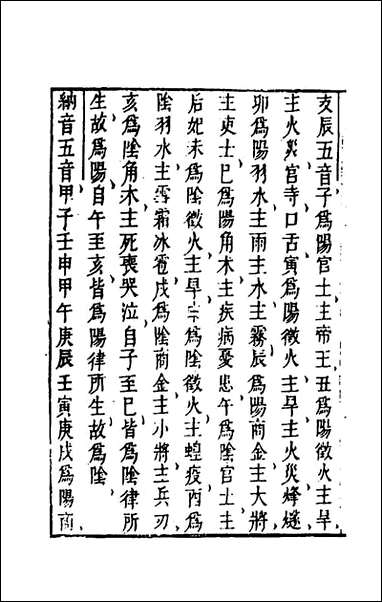 支辰五音子爲陽官土主帝王丑爲陽徵火主旱
主火災官寺口舌寅爲陽徵火主旱主火災烽燧
卯爲陽羽水主雨主水主霧辰爲陽商金主大將
主吏士巳爲陽角木主疾病憂患午爲陰官土主
后妃未爲陰徵火主旱申爲陰徵火主蝗疫酉爲
陰羽水主雪霜冰雹戌爲陰商金主小將主兵刃
亥爲陰角木主死喪哭泣自子至巳皆爲陰律所
生故爲陽自午至亥皆爲陽律所生故爲陰
納音五音甲子壬申甲午庚辰壬寅庚戌爲陽商